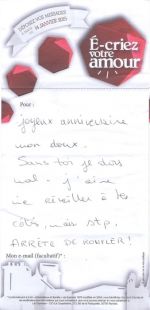 DÉPOSEZ VOS MESSAGES
14 JANVIER 2015
É-criez
votre
amour
Pour :
joyeux anniversaire
mon doux.
Sans toi je dors
mal - j'aime
me réveiller à tes
côtés, mais stp,
ARRÊTE DE RONFLER !
Mon e-mail (facultatif)* :